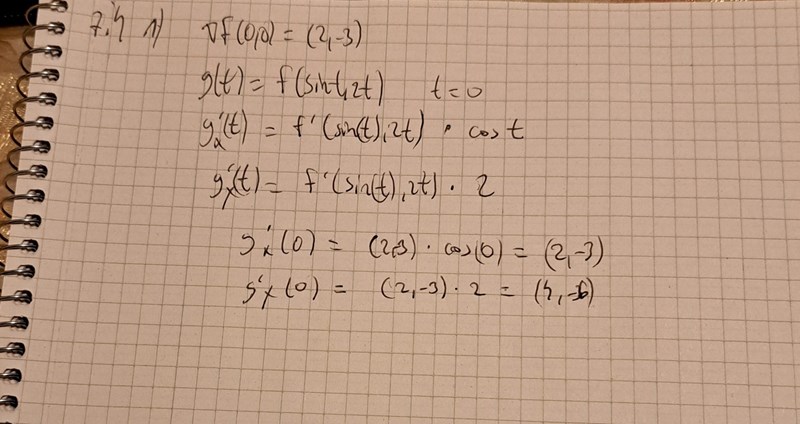 7.4 1) ∇f(0,0) = (2,-3)
g(t) = f(sint, 2t) t=0
g'x(t) = f'(sin(t), 2t) · cos t
g'y(t) = f'(sin(t), 2t) · 2
g'x(0) = (2,3) · cos(0) = (2,-3)
g'y(0) = (2,-3) · 2 = (4,-6)